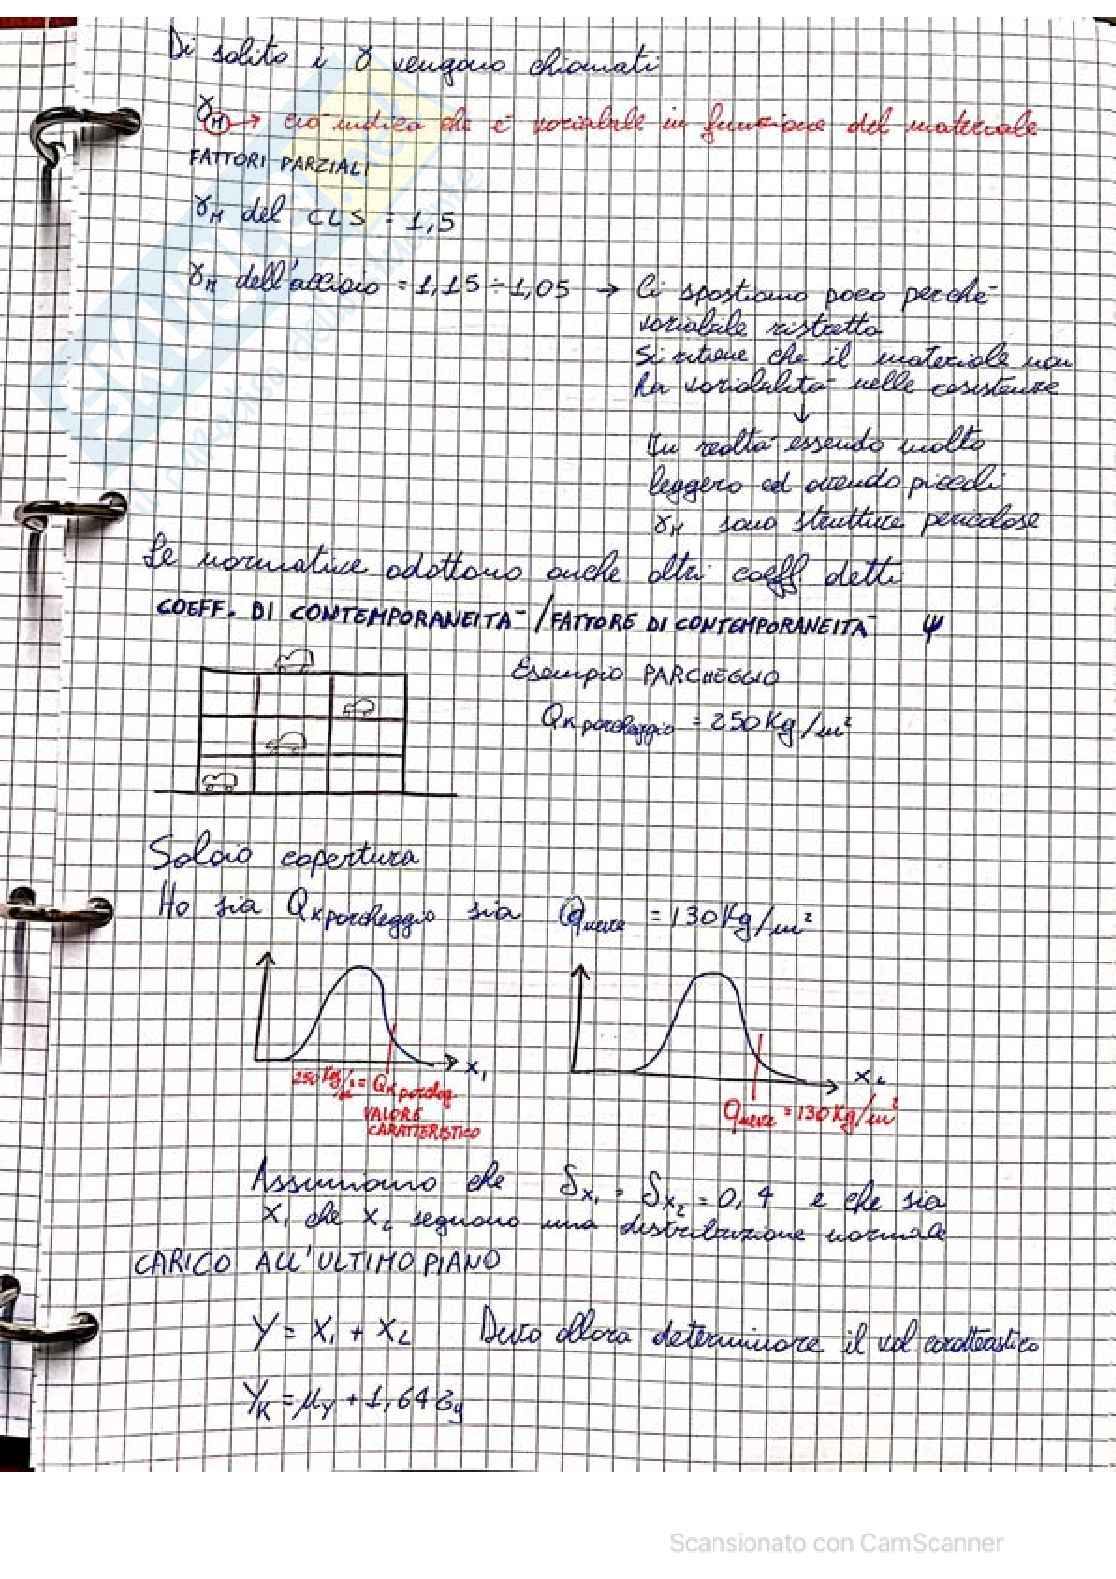 Di solito i γ vengono chiamati
γM → ciò indica che è variabile in funzione del materiale
FATTORI PARZIALI
γM del CLS = 1,5
γM dell'acciaio = 1,15 ÷ 1,05 → Ci spostiamo poco perché
variabile ristretta
Si ritiene che il materiale non
ha variabilità nelle resistenze
↓
In realtà essendo molto
leggero ed avendo piccoli
γM sono strutture pericolose
Le normative adottano anche altri coeff. detti
COEFF. DI CONTEMPORANEITÀ / FATTORE DI CONTEMPORANEITÀ ψ
Esempio PARCHEGGIO
QK parcheggio = 250 Kg/m²
Solaio copertura
Ho sia QK parcheggio sia Qneve = 130 Kg/m²
X1
X2
250 Kg/m² = QK parcheg.
VALORE
CARATTERISTICO
Qneve = 130 Kg/m²
Assumiamo che δX1 = δX2 = 0,4 e che sia
X1 che X2 seguono una distribuzione normale
CARICO ALL'ULTIMO PIANO
Y = X1 + X2 Devo allora determinare il val caratteristico
YK = μY + 1,64 σy
Scansionato con CamScanner